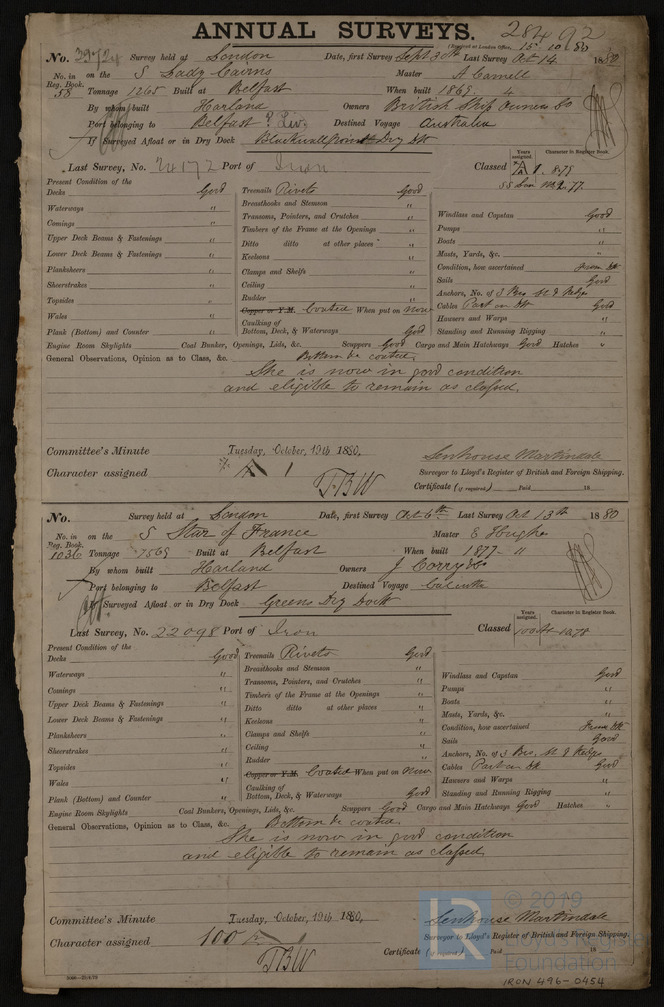 ANNUAL SURVEYS. 28492
(Received at London Office, 15 10 80
No. 3972 Survey held at London Date, first Survey Sept 30th Last Survey Oct 14 1880
No. in Reg. Book. 58 on the S Lady Cairns Master A Camell
Tonnage 1265 Built at Belfast When built 1869. 4
By whom built Harland Owners British Ship Owners Co
Port belonging to Belfast Destined Voyage Australia
If Surveyed Afloat or in Dry Dock Blackwall Point Dry Dk
Last Survey, No. 24172 Port of Iron Classed A 1. 8.79
Years assigned. Character in Register Book.
SS Lon No2. 77
Present Condition of the
Decks Good Treenails Rivets Good
Waterways " Breasthooks and Stemson "
Comings " Transoms, Pointers, and Crutches " Windlass and Capstan Good
Upper Deck Beams & Fastenings " Timbers of the Frame at the Openings " Pumps "
Lower Deck Beams & Fastenings " Ditto ditto at other places " Boats "
Planksheers " Keelsons " Masts, Yards, &c. "
Sheerstrakes " Clamps and Shelfs " Condition, how ascertained From Dk
Topsides " Ceiling " Sails Good
Wales " Rudder " Anchors, No. of 3 Bro, St & Kedge
Plank (Bottom) and Counter " Copper or Y.M. Coated When put on now Cables Part on Dk Good
Caulking of Bottom, Deck, & Waterways Good Hawsers and Warps "
Standing and Running Rigging "
Engine Room Skylights Coal Bunker, Openings, Lids, &c. Scuppers Good Cargo and Main Hatchways Good Hatches "
General Observations, Opinion as to Class, &c. Bottom &c coated.
She is now in good condition
and eligible to remain as classed.
Committee's Minute Tuesday, October, 19th 1880. Senhouse Martindale
Character assigned A 1 Surveyor to Lloyd's Register of British and Foreign Shipping.
TBW Certificate (if required) Paid 18
No. Survey held at London Date, first Survey Oct 6th Last Survey Oct 13th 1880
No. in Reg. Book. 1036 on the S Star of France Master E Hughes
Tonnage 1569 Built at Belfast When built 1877 - 11
By whom built Harland Owners J Corry & Co
Port belonging to Belfast Destined Voyage Calcutta
If Surveyed Afloat or in Dry Dock Greens Dry Dock
Years assigned. Character in Register Book.
Last Survey, No. 22098 Port of Iron Classed 100 A 10.78
Present Condition of the
Decks Good Treenails Rivets Good
Waterways " Breasthooks and Stemson " Windlass and Capstan Good
Comings " Transoms, Pointers, and Crutches " Pumps "
Upper Deck Beams & Fastenings " Timbers of the Frame at the Openings " Boats "
Lower Deck Beams & Fastenings " Ditto ditto at other places " Masts, Yards, &c. "
Planksheers " Keelsons " Condition, how ascertained From Dk
Sheerstrakes " Clamps and Shelfs " Sails Good
Topsides " Ceiling " Anchors, No. of 3 Bro, St & Kedge
Wales " Rudder " Cables Part on Dk Good
Copper or Y.M. Coated When put on Now Hawsers and Warps "
Plank (Bottom) and Counter Good Caulking of Bottom, Deck, & Waterways Good Standing and Running Rigging "
Engine Room Skylights Coal Bunkers, Openings, Lids, &c. Scuppers Good Cargo and Main Hatchways Good Hatches "
General Observations, Opinion as to Class, &c. Bottom &c coated.
She is now in good condition
and eligible to remain as classed
Committee's Minute Tuesday, October, 19th 1880, Senhouse Martindale
Character assigned 100 A 1 Surveyor to Lloyd's Register of British and Foreign Shipping.
TBW Certificate (if required) Paid 18
© 2019
LR Lloyd's Register
Foundation
IRON 496-0454